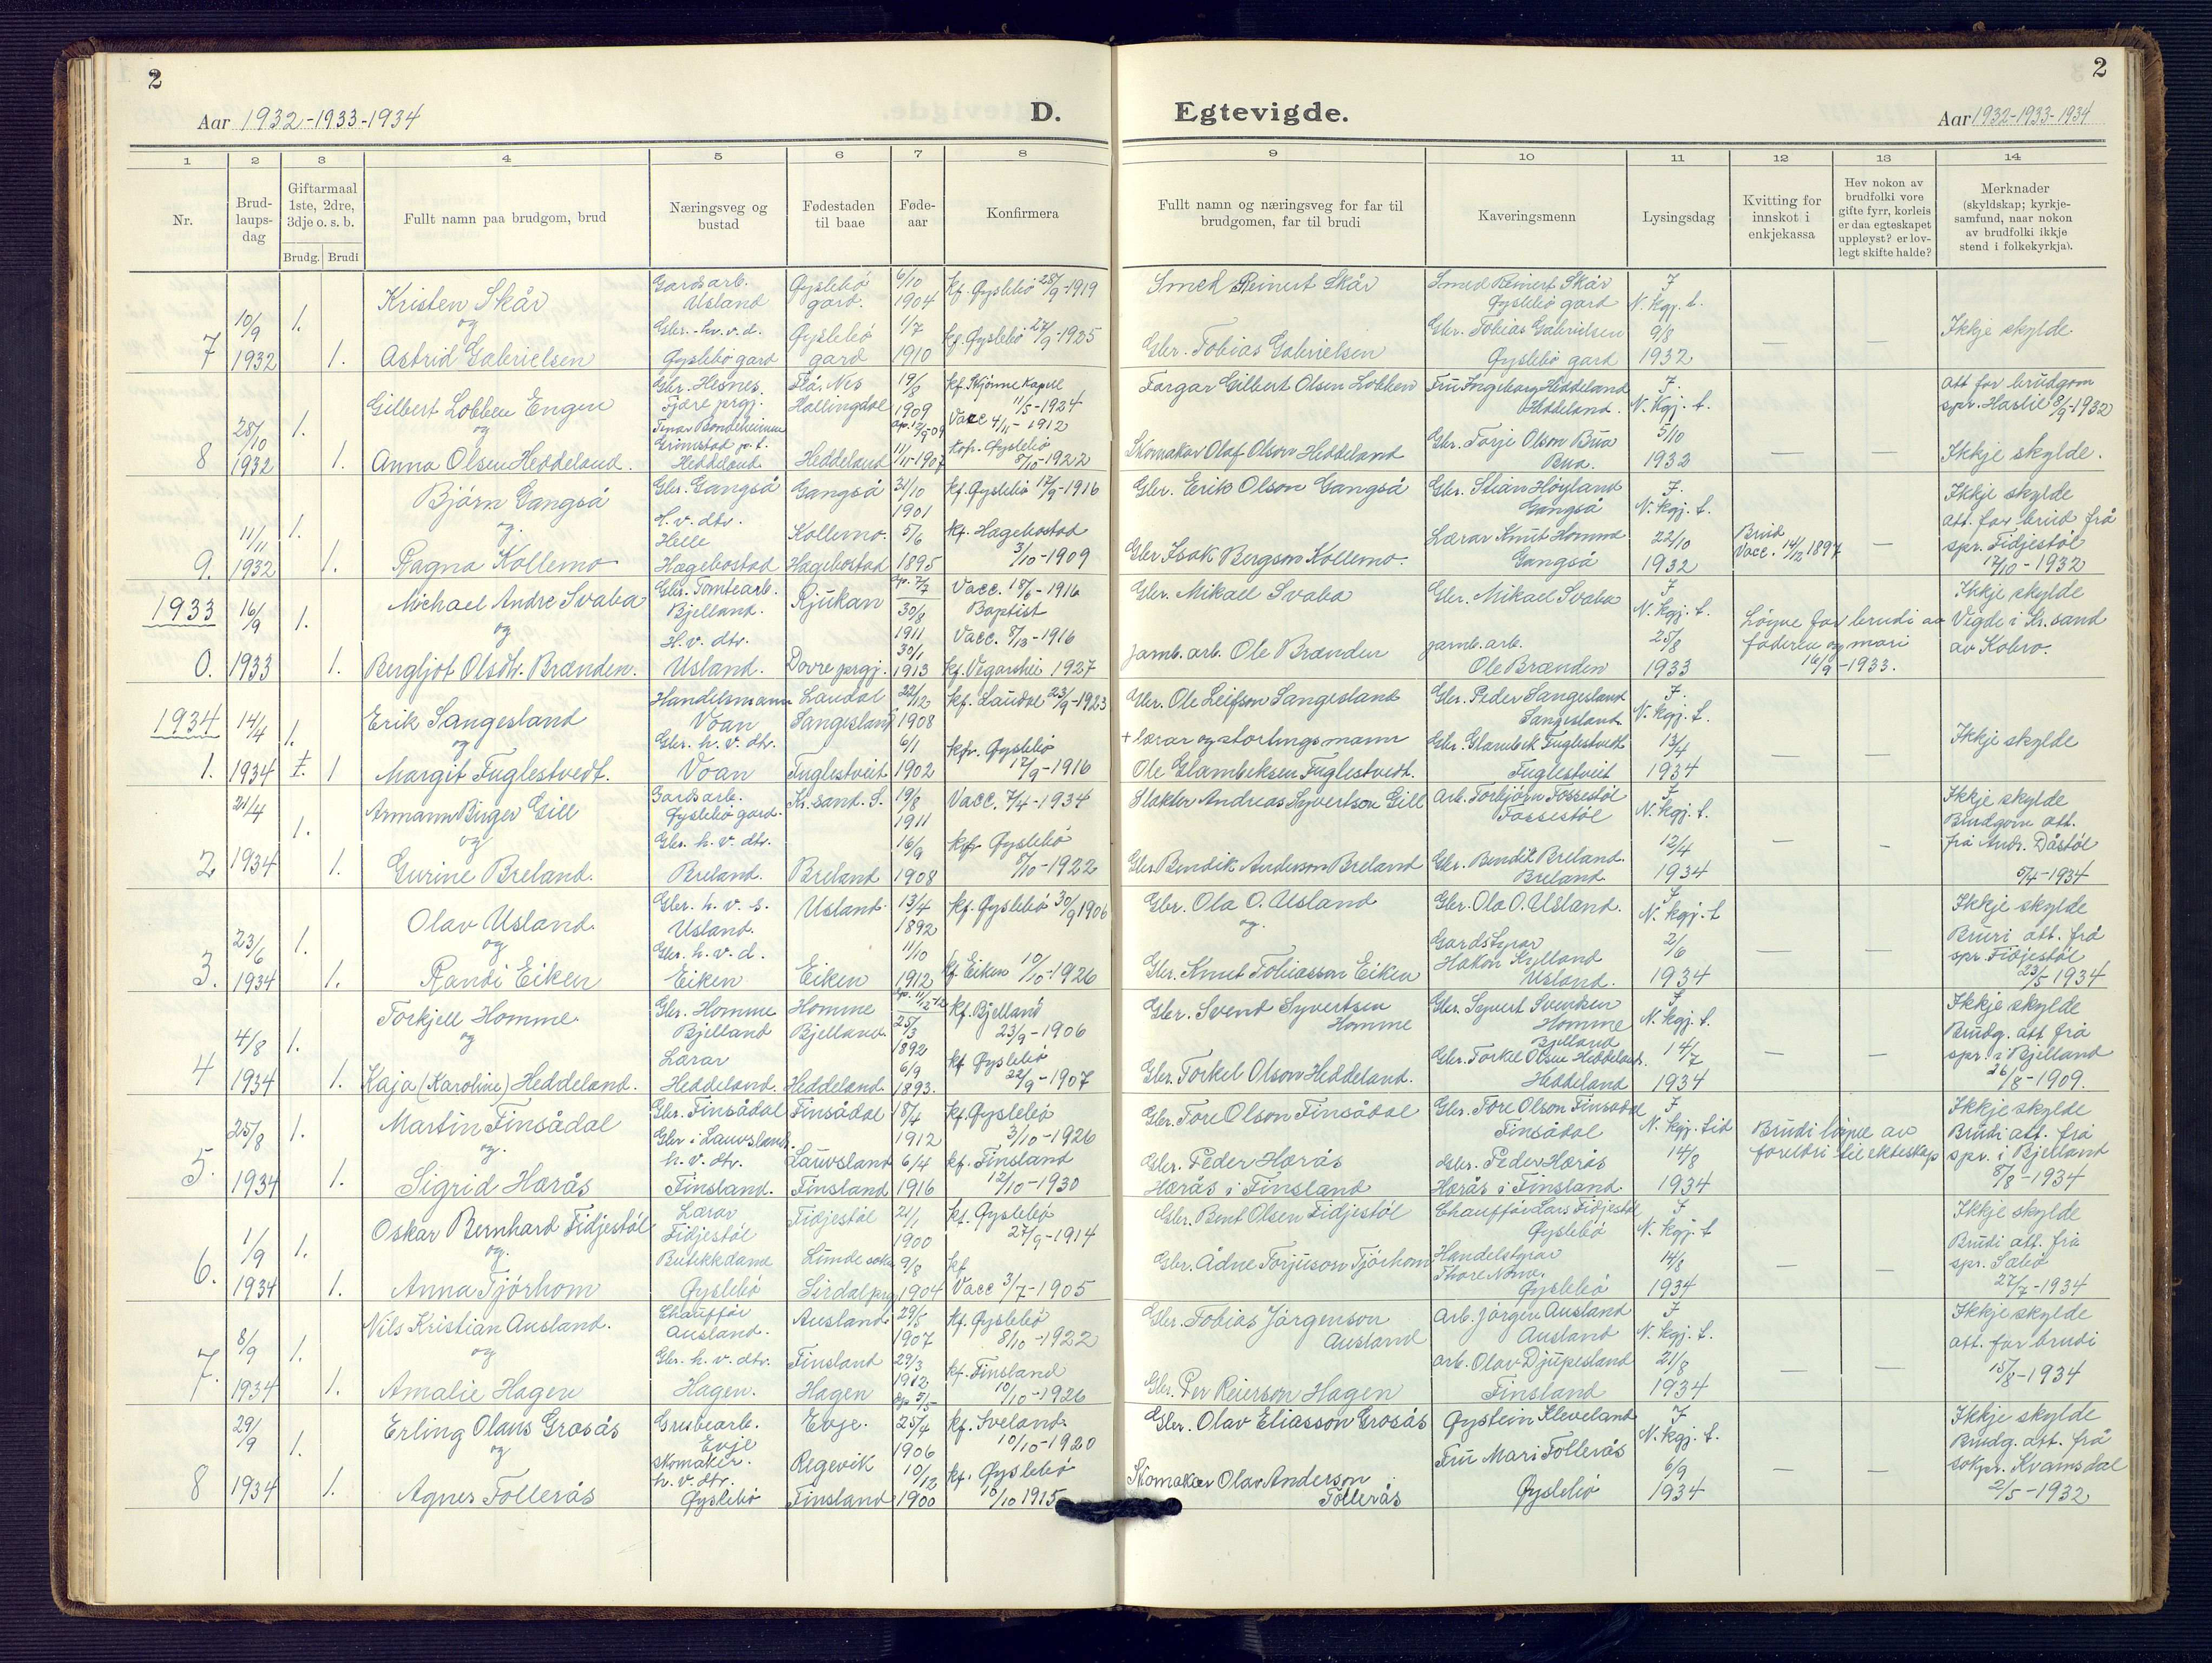 2
2
Aar 1932-1933-1934
D.
Egtevigde.
Aar 1932-1933-1934
1 2 3 4 5 6 7 8 9 10 11 12 13 14
Nr.
Brud-
laups-
dag
Giftarmaal
1ste, 2dre,
3dje o. s. b.
Brudg. Brudi
Fullt namn paa brudgom, brud
Næringsveg og
bustad
Fødestaden
til baae
Føde-
aar
Konfirmera
Fullt namn og næringsveg for far til
brudgomen, far til brudi
Kaveringsmenn
Lysingsdag
Kvitting for
innskot i
enkjekassa
Hev nokon av
brudfolki vore
gifte fyrr, korleis
er daa egteskapet
uppløyst? er lov-
legt skifte halde?
Merknader
(skyldskap; kyrkje-
samfund, naar nokon
av brudfolki ikkje
stend i folkekyrkja).
7
10/9
1932
1. 1.
Kristen Skår
og
Astrid Gabrielsen
Gardsarb.
Usland
Gbr.-h.v.d.
Øyslebö gard
Øyslebö
gard.
Øyslebö
gard
6/10
1904
1/7
1910
kf. Øyslebö 28/9-1919
kf. Øyslebö 27/9-1925
Smed Reinert Skår
Gbr. Tobias Gabrielsen
Smed Reinert Skår
Øyslebö gard
Gbr. Tobias Gabrielsen
Øyslebö gard
I
N. kgj. t.
9/8
1932
—
—
Ikkje skylde.
8
28/10
1932
1. 1.
Gilbert Lobben Engen
og
Anna Olsen Heddeland.
Gbr. Hesnes.
Fjære prgj.
Grimstad p.t.
Heddeland
Flå, Nes
Hallingdal
Heddeland
19/8
1909
11/11-1907
kf. Stjönne Kapell
11/5-1924
Vacc 4/11-1912
Kofr. Øyslebö
8/10-1922
Fargar Gilbert Olsen Lobben
Skomakar Olaf Olson Heddeland
Fru Ingeborg Heddeland
Heddeland.
Gbr. Torje Olson Bua
Bua.
I.
N. Kgj. t.
5/10
1932
—
—
Att for brudgom
spr. Haslie 8/9-1932
Ikkje skylde.
9.
11/11
1932
1. 1.
Björn Gangså
og.
Ragna Kollemo
Gbr. Gangså
H.v. dtr.
Helle
Hægebostad
Gangså
Kollemo.
Hægebostad
31/10
1901
5/6
1895
kf. Øyslebö 17/9-1916
kf. Hægebostad
3/10-1909
Gbr. Erik Olson Gangså
Gbr. Isak Bergson Kollemo.
Gbr. Stian Höyland
Gangså
Lærar Knut Homme
Gangså
I.
N. kgj. t.
22/10
1932
Brud
Vacc. 14/12 1897
—
Ikkje skylde
att. for brud frå
spr. Fidjestöl
17/10-1932
1933
0.
16/9
1933
1. 1.
Michael Andre Svaba
og
Bergljot Olsdtr. Brænden.
Gbr. Tomtearb.
Bjelland.
H.v. dtr.
Usland.
Rjukan
Dovre prgj.
30/8
1911
30/1
1913
Vacc. 18/6-1916
Baptist
Vacc. 8/13-1916
kf. Vegårshei 1927
Gbr. Mikael Svaba
jamb. arb. Ole Brænden
Gbr. Mikael Svaba
jamb. arb.
Ole Brænden
I
N. kgj. t.
25/8
1933
Löyve for brudi av
faderen og mori
16/9-1933.
Ikkje skylde
Vigde i Kr. sand
av Kobro.
1934
1.
14/4
1934
1. 1
Erik Sangesland
og
Margit Fuglestvedt.
Handelsmann
Voan
Gbr. h. v. dtr.
Voan
Laudal
Sangesland
Fuglestveit
22/12
1908
6/1
1902
kf. Laudal 23/9-1923
kfr. Øyslebö
17/9-1916
Gbr. Ole Leifson Sangesland
+ lærar og stortingsmann
Ole Glambeksen Fuglestvedt.
Gbr. Peder Sangesland
Sangesland
Gbr. Glambek Fuglestvedt
Fuglestveit
I.
N. kgj. t.
13/4
1934
—
—
Ikkje skylde
2
21/4
1934
1. 1.
Armann Birger Gill
og
Gurine Breland.
Gardsarb.
Øyslebö gard.
Gbr. h. v. dtr.
Breland.
Kr. sand. S.
Breland
19/8
1911
16/9
1908
Vacc. 7/4-1934
kfr Øyslebö
8/10-1922
Slakter Andreas Syvertson Gill
Gbr. Bendik Anderson Breland
Arb. Torbjörn Fossestöl
Fossestöl
Gbr. Bendik Breland.
Breland
I
N. kgj. t.
12/4
1934
—
—
Ikkje skylde
Brudgom att.
frå Andr. Dåstöl
5/4-1934
3.
23/6
1934
1. 1.
Olav Usland.
og
Randi Eiken
Gbr. h. v. s.
Usland.
Gbr. h. v. d.
Eiken
Usland.
Eiken
13/4
1892
11/10
1912
kf. Øyslebö 30/9 1906
kf. Eiken 10/10-1926
Gbr. Ola O. Usland
og.
Gbr. Knut Tobiasson Eiken
Gbr. Ola O. Usland.
Gardstyrar
Håkon Kylland
Usland.
I
N. kgj. t
2/6
1934
—
—
Ikkje skylde
Bruri att. frå
spr. Fidjestöl
23/5 1934
4
4/8
1934
1. 1.
Torkjell Homme
og
Kaja (Karoline) Heddeland.
Gbr. Homme
Bjelland
Lærar
Heddeland.
Homme
Bjelland.
Heddeland.
25/3
1892
6/9
1893.
kf. Bjelland
23/9-1906
kf Øyslebö
22/9-1907
Gbr. Svend Syvertsen
Homme
Gbr. Torkel Olson Heddeland.
Gbr. Syvert Svendsen
Homme
Bjelland
Gbr. Torkel Olsen Heddeland.
Heddeland
I
N. kgj. t.
14/7
1934
—
—
Ikkje skylde
Brudg. att frå
spr. i Bjelland
26/8-1909.
5.
25/8
1934
1. 1.
Martin Finsådal
og.
Sigrid Hærås
Gbr. Finsådal
Gbr i Lauvsland.
h. v. dtr.
Finsland.
Finsådal
Lauvsland
Finsland
18/4
1912
6/4
1916
kf. Øyslebö
3/10-1926
kf. Finsland
12/10-1930
Gbr. Tore Olson Finsådal
Gbr. Peder Hærås
Hærås i Finsland
Gbr. Tore Olson Finsådal
Finsådal
Gbr. Peder Hærås
Hærås i Finsland
I
N. kgj. tid
14/8
1934
Brudi löyve av
foreldri til ekteskap
Ikkje skylde
Brudi att. frå
spr. i Bjelland
8/8-1934
6.
1/9
1934
1. 1.
Oskar Bernhard Fidjestöl
og.
Anna Tjórhom
Lærar
Fidjestöl
Butikkdame
Øyslebö
Fidjestöl
Lunde sokn
Sirdal prgj
21/1
1900
9/8
1904
kf. Øyslebö
27/9-1914
kf
Vacc 3/7-1905
Gbr. Bent Olsen Fidjestöl
Gbr. Ådne Torjuson Tjörhom
Chauffør Lars Fidjestöl
Øyslebö
Handelstyrar
Thore Nome.
Øyslebö
I
N. kgj. t
14/8
1934
—
—
Ikkje skylde
Brudi att. frå
spr. Sæbö
27/7-1934
7.
8/9
1934
1. 1.
Nils Kristian Ausland.
og
Amalie Hagen
Chaufför
Ausland.
Gbr. h. v. dtr.
Hagen.
Ausland.
Finsland
Hagen
29/5
1907
29/3
1912
kf. Øyslebö
8/10-1922
kf. Finsland
10/10-1926
Gbr. Tobias Jörgenson
Ausland
Gbr. Per Reierson Hagen
Arb. Jörgen Ausland
Ausland
arb. Olav Djupesland
Finsland
I
N. kgj. t.
21/8
1934
—
—
Ikkje skylde
att. for brudi
15/8-1934
8
29/9
1934
1. 1.
Erling Olaus Grosås
og
Agnes Tollerås
Grubearb.
Evje
Skomaker.
h. v. dtr.
Øyslebö
Evje.
Regevik
Finsland
25/4
1906
10/12
1900
kf. Iveland.
10/10-1920
kf. Øyslebö
10/10 1915
Gbr. Olav Eliasson Grosås
Skomakar Olav Anderson
Tollerås
Øystein Kleveland
Fru Mari Tollerås
Øyslebö
I
N. kgj. t.
6/9
1934
—
—
Ikkje skylde
Brudg. att. frå
sokpr. Kvamsdal
2/5-1932